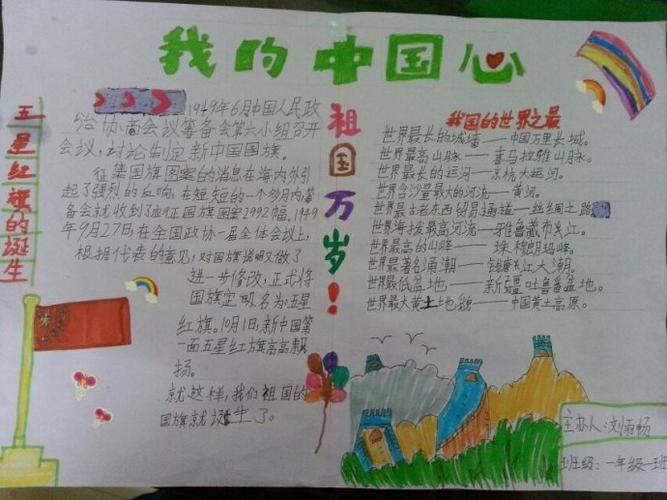 我的中国心
五星红旗的诞生
1949年6月中国人民政
治协商会议筹备会第六小组召开
会议,讨论制定新中国国旗。
征集国旗图案的消息在海内外引
起了强烈的反响,在短短的一个多月内,筹
备会就收到了应征国旗图案2992幅,1949
年9月27日在全国政协一届全体会议上,
根据代表的意见,对国旗说明又做了
进一步修改,正式将
国旗定名为五星
红旗。10月1日,新中国第
一面五星红旗高高飘
扬。
就这样,我们祖国的
国旗就诞生了。
祖国万岁!
我国的世界之最
世界最长的城墙——中国万里长城。
世界最高山脉——喜马拉雅山脉。
世界最长的运河——京杭大运河。
世界含沙量最大的河流——黄河。
世界最古老东西贸易通道——丝绸之路
世界海拔最高河流——雅鲁藏布江。
世界最高的山峰——珠穆朗玛峰。
世界最著名涌潮——钱塘江大潮。
世界最低盆地——新疆吐鲁番盆地。
世界最大黄土地貌——中国黄土高原。
主办人:刘雨畅
班级:一年级一班